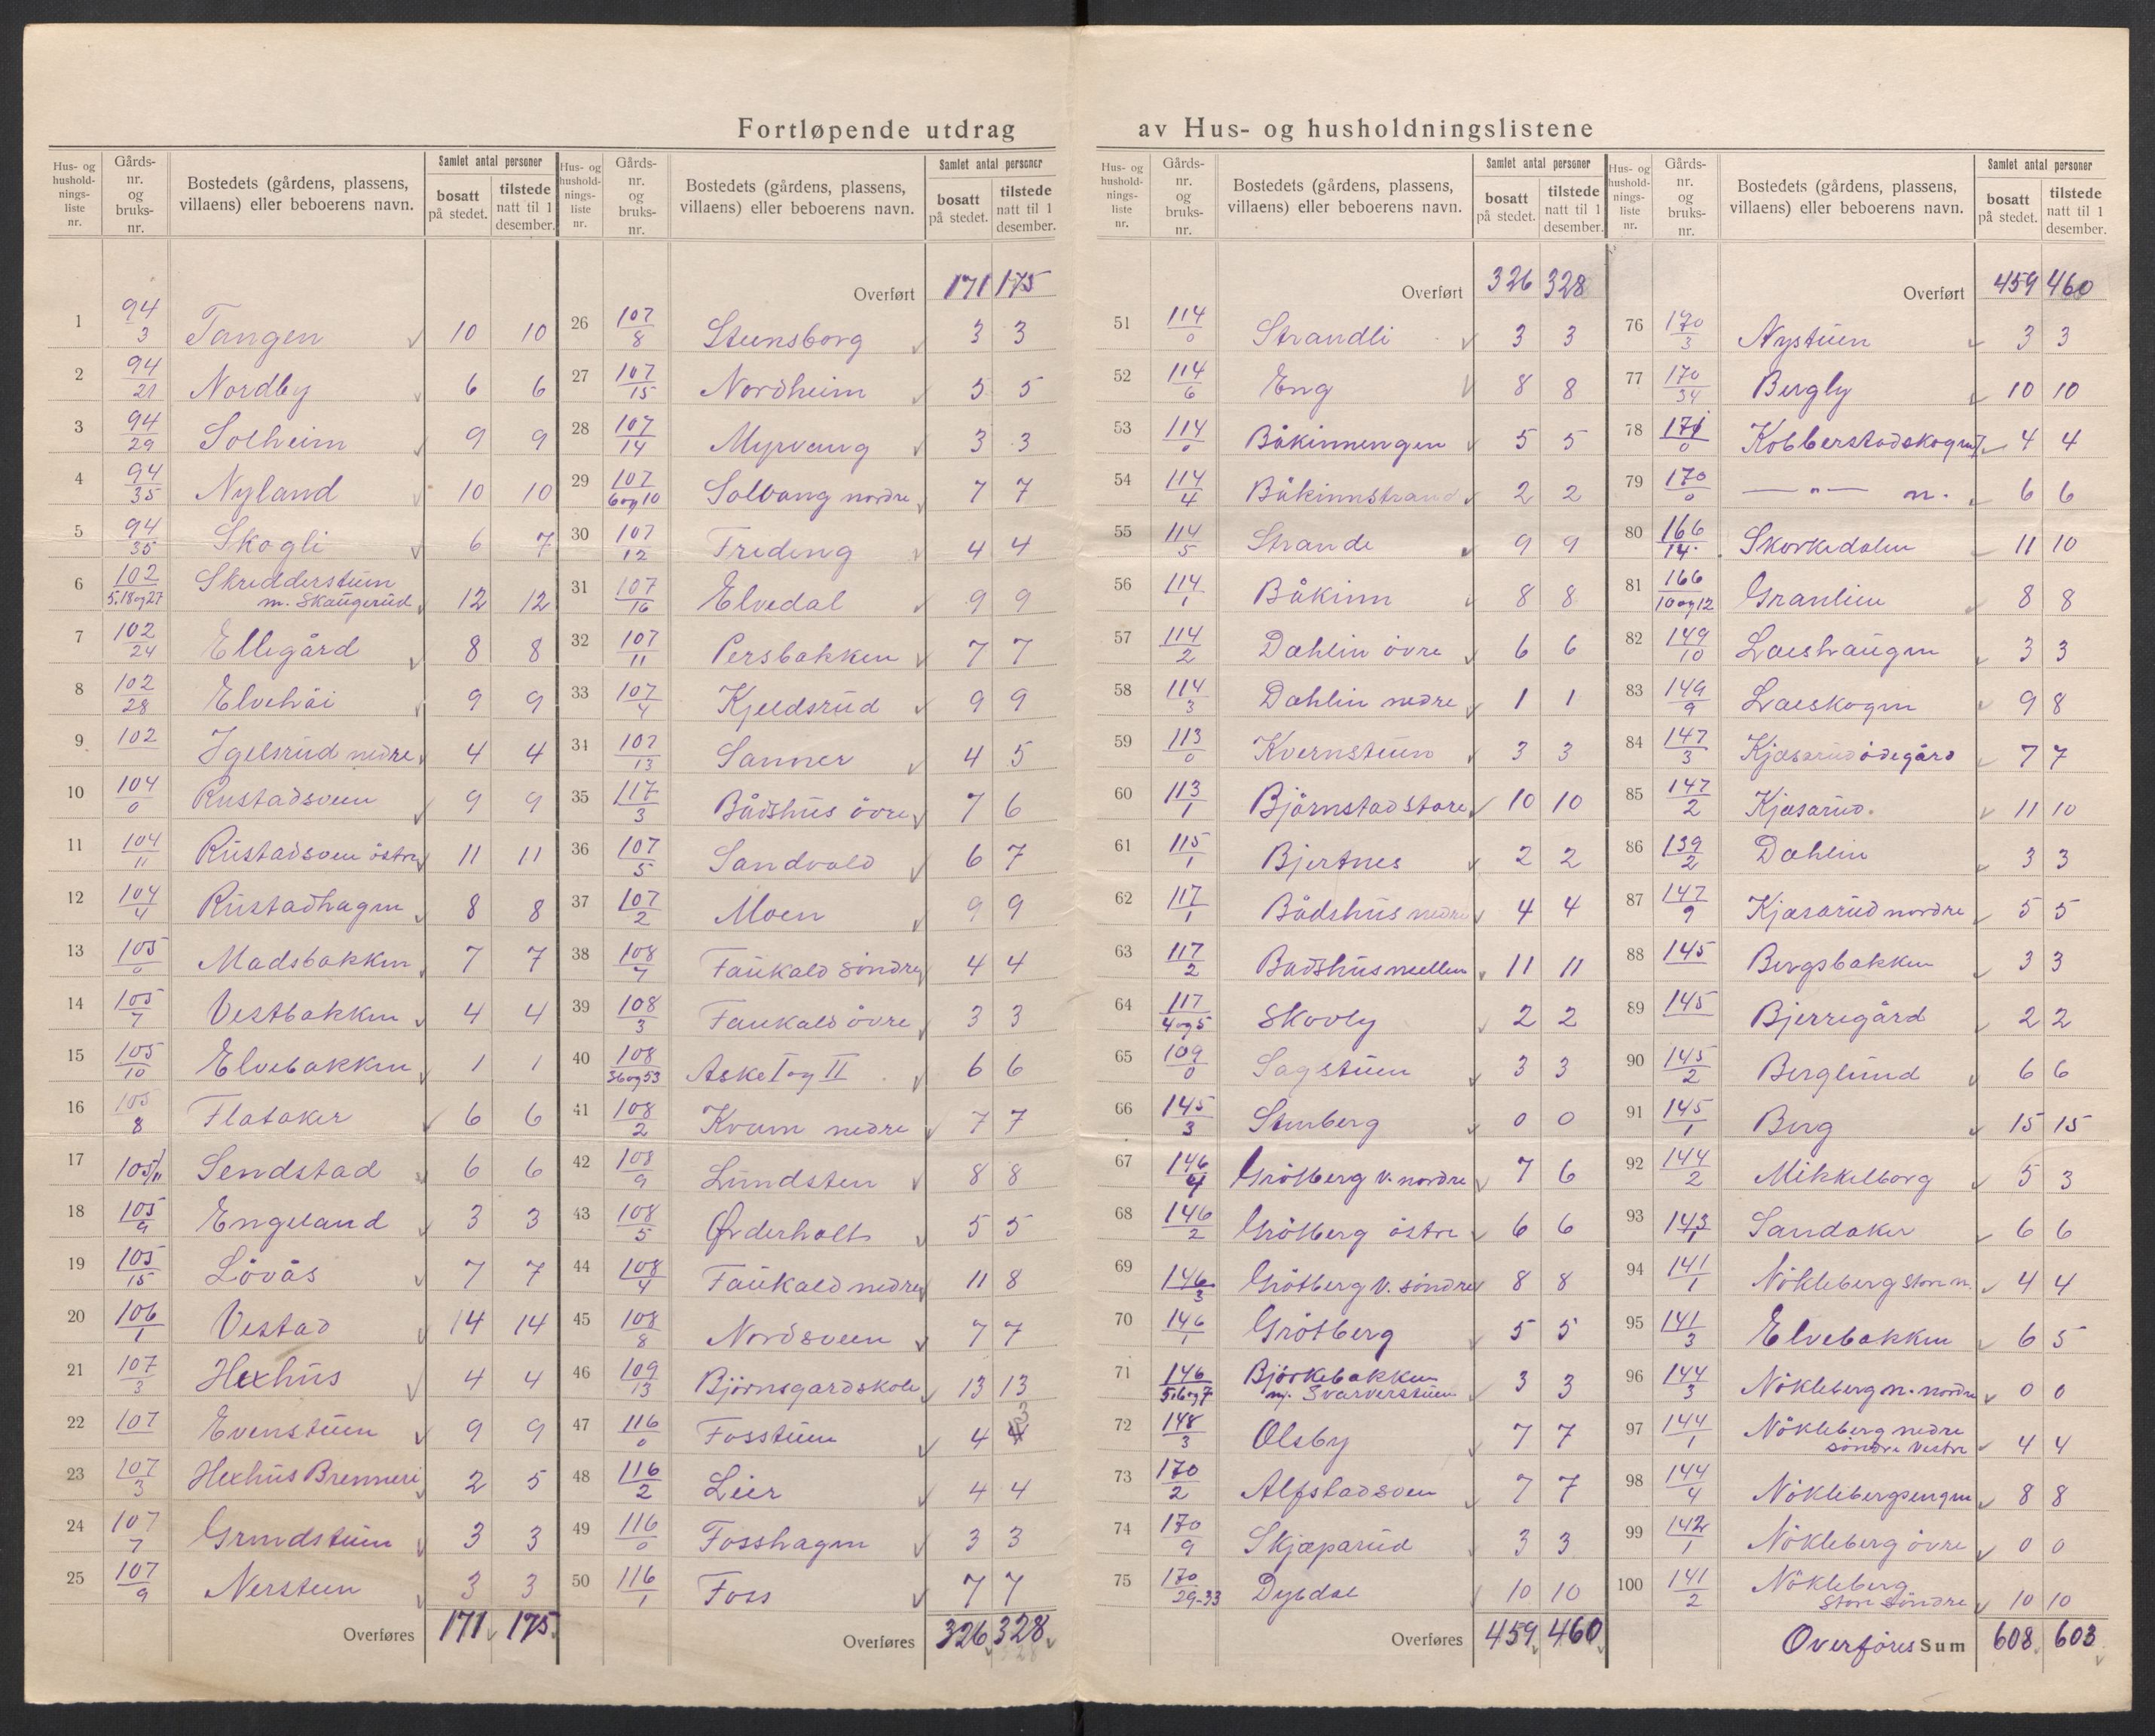 Fortløpende utdrag av Hus- og husholdningslistene
Hus- og husholdnings-liste nr. Gårds-nr. og bruks-nr. Bostedets (gårdens, plassens, villaens) eller beboerens navn. Samlet antal personer bosatt på stedet. tilstede natt til 1 desember.
1 94/3 Tangen 10 10
2 94/21 Nordby 6 6
3 94/29 Solheim 9 9
4 94/35 Nyland 10 10
5 94/35 Skogli 6 7
6 102/5.18og27 Skredderstuen m. Skaugerud 12 12
7 102/24 Ellegård 8 8
8 102/28 Elvehöi 9 9
9 102 Igelsrud nedre 4 4
10 104/0 Rustadsveen 9 9
11 104/11 Rustadsveen östre 11 11
12 104/4 Rustadhagen 8 8
13 105/0 Madsbakken 7 7
14 105/7 Vestbakken 4 4
15 105/10 Elvebakken 1 1
16 105/8 Flataker 6 6
17 105/11 Sendstad 6 6
18 105/9 Engeland 3 3
19 105/15 Lövås 7 7
20 106/1 Vestad 14 14
21 107/3 Hexhus 4 4
22 107 Evenstuen 9 9
23 107/3 Hexhus Brenneri 2 5
24 107/7 Grindstuen 3 3
25 107/9 Nersteen 3 3
Overføres 171 175
Hus- og husholdnings-liste nr. Gårds-nr. og bruks-nr. Bostedets (gårdens, plassens, villaens) eller beboerens navn. Samlet antal personer bosatt på stedet. tilstede natt til 1 desember.
Overført 171 175
26 107/8 Steensborg 3 3
27 107/15 Nordheim 5 5
28 107/14 Myrvang 3 3
29 107/6og10 Solvang nordre 7 7
30 107/12 Fredeng 4 4
31 107/16 Elvedal 9 9
32 107/11 Persbakken 7 7
33 107/4 Kjeldsrud 9 9
34 107/13 Sanner 4 5
35 117/3 Bådshus övre 7 6
36 107/5 Sandvold 6 7
37 107/2 Moen 9 9
38 108/7 Faukald söndre 4 4
39 108/3 Faukald övre 3 3
40 108/36og53 Aske I og II 6 6
41 108/2 Kvam nedre 7 7
42 108/9 Lundsten 8 8
43 108/5 Örderholt 5 5
44 108/4 Faukald nedre 11 8
45 108/8 Nordsveen 7 7
46 109/13 Björnsgardskole 13 13
47 116/0 Fosstuen 4 3
48 116/2 Lier 4 4
49 116/0 Fosshagen 3 3
50 116/1 Foss 7 7
Overføres 326 328
Hus- og husholdnings-liste nr. Gårds-nr. og bruks-nr. Bostedets (gårdens, plassens, villaens) eller beboerens navn. Samlet antal personer bosatt på stedet. tilstede natt til 1 desember.
Overført 326 328
51 114/0 Strandli 3 3
52 114/6 Eng 8 8
53 114/0 Båkinnengen 5 5
54 114/4 Båkinnstrand 2 2
55 114/5 Strande 9 9
56 114/1 Båkinn 8 8
57 114/2 Dahlin övre 6 6
58 114/3 Dahlin nedre 1 1
59 113/0 Kvernstuen 3 3
60 113/1 Björnstad store 10 10
61 115/1 Bjertnes 2 2
62 117/1 Bådshus nedre 4 4
63 117/2 Badshus mellem 11 11
64 117/4og5 Skovly 2 2
65 109/0 Sagstuen 3 3
66 145/3 Stenberg 0 0
67 146/4 Grötberg v. nordre 7 6
68 146/2 Grötberg östre 6 6
69 146/3 Grötberg v. söndre 8 8
70 146/1 Grötberg 5 5
71 146/5.6og7 Björkebakken m. Svarverstuen 3 3
72 148/3 Olsby 7 7
73 170/2 Alfstadsveen 7 7
74 170/9 Skjæparud 3 3
75 170/29-33 Dybdal 10 10
Overføres 459 460
Hus- og husholdnings-liste nr. Gårds-nr. og bruks-nr. Bostedets (gårdens, plassens, villaens) eller beboerens navn. Samlet antal personer bosatt på stedet. tilstede natt til 1 desember.
Overført 459 460
76 170/3 Nystuen 3 3
77 170/34 Bergly 10 10
78 171/0 Kobberstadskogen 4 4
79 170/0 — " — n. 6 6
80 166/14 Skorkedalen 11 10
81 166/10og12 Granlien 8 8
82 149/10 Laeshaugen 3 3
83 149/9 Laeskogen 9 8
84 147/3 Kjæsarud ödegård 7 7
85 147/2 Kjæsarud. 11 10
86 139/2 Dahlin 3 3
87 147/9 Kjæsarud nordre 5 5
88 145 Bergsbakken 3 3
89 145 Bjerregård 2 2
90 145/2 Berglund 6 6
91 145/1 Berg 15 15
92 144/2 Mikkelborg 5 3
93 143/1 Sandaker 6 6
94 141/1 Nökleberg store n. 4 4
95 141/3 Elvebakken 6 5
96 144/3 Nökleberg n. nordre 0 0
97 144/1 Nökleberg nedre söndre Vestre 4 4
98 144/4 Nöklebergsengen 8 8
99 142/1 Nökleberg övre 0 0
100 141/2 Nökleberg store söndre 10 10
Overföres Sum 608 603